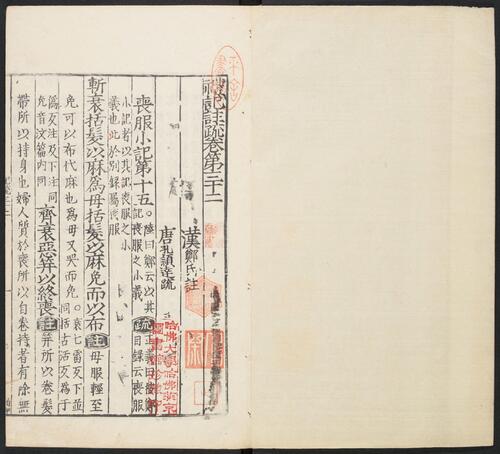 禮記註疏卷第三十二
漢鄭氏註
唐孔穎達疏
喪服小記第十五。陸曰鄭云以其記喪服之小義疏正義曰按鄭目錄云喪服
小記者以其記喪服之小義也此於別錄屬喪服
斬衰括髮以麻爲母括髮以麻免而以布註母服輕至
免可以布代麻也爲母又哭而免。衰七雷反下並同括古活反爲于
僞反注及下注同免音汶篇内同齊衰惡笄以終喪註笄所以卷髮
帶所以持身也婦人質於喪所以自卷持者有除無
哈佛大學哈佛燕京圖書館珍藏印